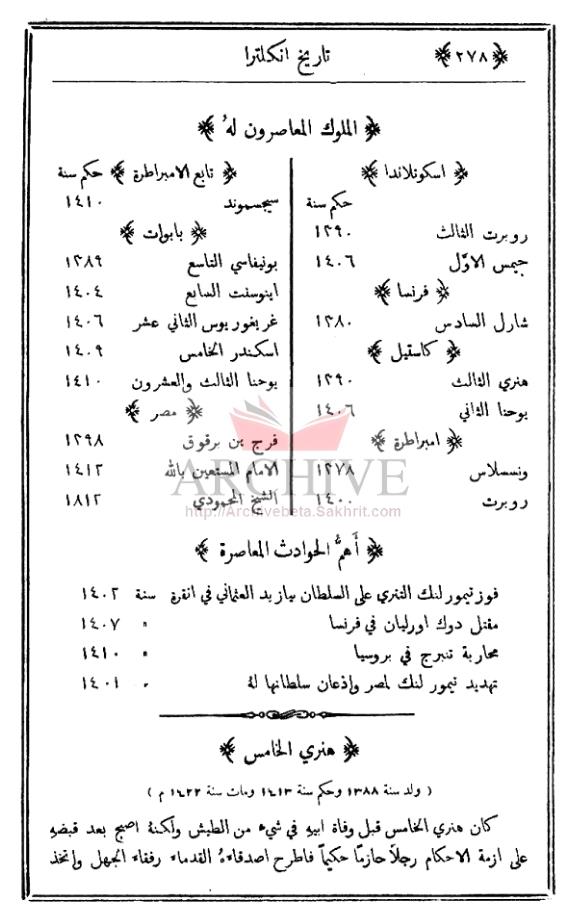 ﴿٢٧٨﴾ تاريخ انكلترا
﴿ الملوك المعاصرون لهُ ﴾
﴿ اسكوتلاندا ﴾
حكم سنة
روبرت الثالث ١٣٩٠
جيمس الاوّل ١٤٠٦
﴿ فرنسا ﴾
شارل السادس ١٣٨٠
﴿ كاستيل ﴾
هنري الثالث ١٣٩٠
يوحنا الثاني ١٤٠٦
﴿ امبراطرة ﴾
ونسسلاس ١٣٧٨
روبرت ١٤٠٠
﴿ تابع الامبراطرة ﴾ حكم سنة
سيجسموند ١٤١٠
﴿ بابوات ﴾
بونيفاسي التاسع ١٣٨٩
اينوسنت السابع ١٤٠٤
غريغوريوس الثاني عشر ١٤٠٦
اسكندر الخامس ١٤٠٩
يوحنا الثالث والعشرون ١٤١٠
﴿ مصر ﴾
فرج بن برقوق ١٣٩٨
الامام المستعين بالله ١٤١٢
الشيخ الحمودي ١٨١٢
ARCHIVE
http://Archivebeta.Sakhrit.com
﴿ أهمُّ الحوادث المعاصرة ﴾
فوز تيمور لنك التتري على السلطان بيازيد العثماني في انقرة سنة ١٤٠٢
مقتل دوك اورليان في فرنسا " ١٤٠٧
محاربة تنبرج في بروسيا " ١٤١٠
تهديد تيمور لنك لمصر وإذعان سلطانها لهُ " ١٤٠١
﴿ هنري الخامس ﴾
( ولد سنة ١٣٨٨ وحكم سنة ١٤١٣ ومات سنة ١٤٢٢ م )
كان هنري الخامس قبل وفاة ابيهِ في شيءٍ من الطيش ولكنهُ اصبح بعد قبضهِ
على ازمة الاحكام رجلاً حازمًا حكيمًا فاطرح اصدقاءهُ القدماء رفقاء الجهل واتخذ